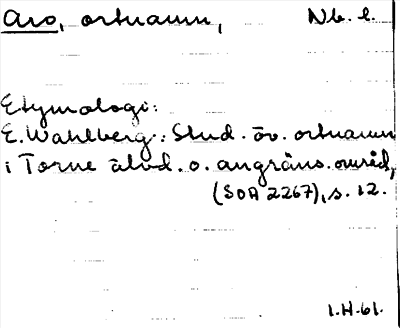 Aro, ortnamn, Nb. l.
Etymologi:
E. Wahlberg: Stud. öv. ortnamn
i Torne älvd. o. angräns. områd.,
(SOA 2267), s. 12.
1.H.61.